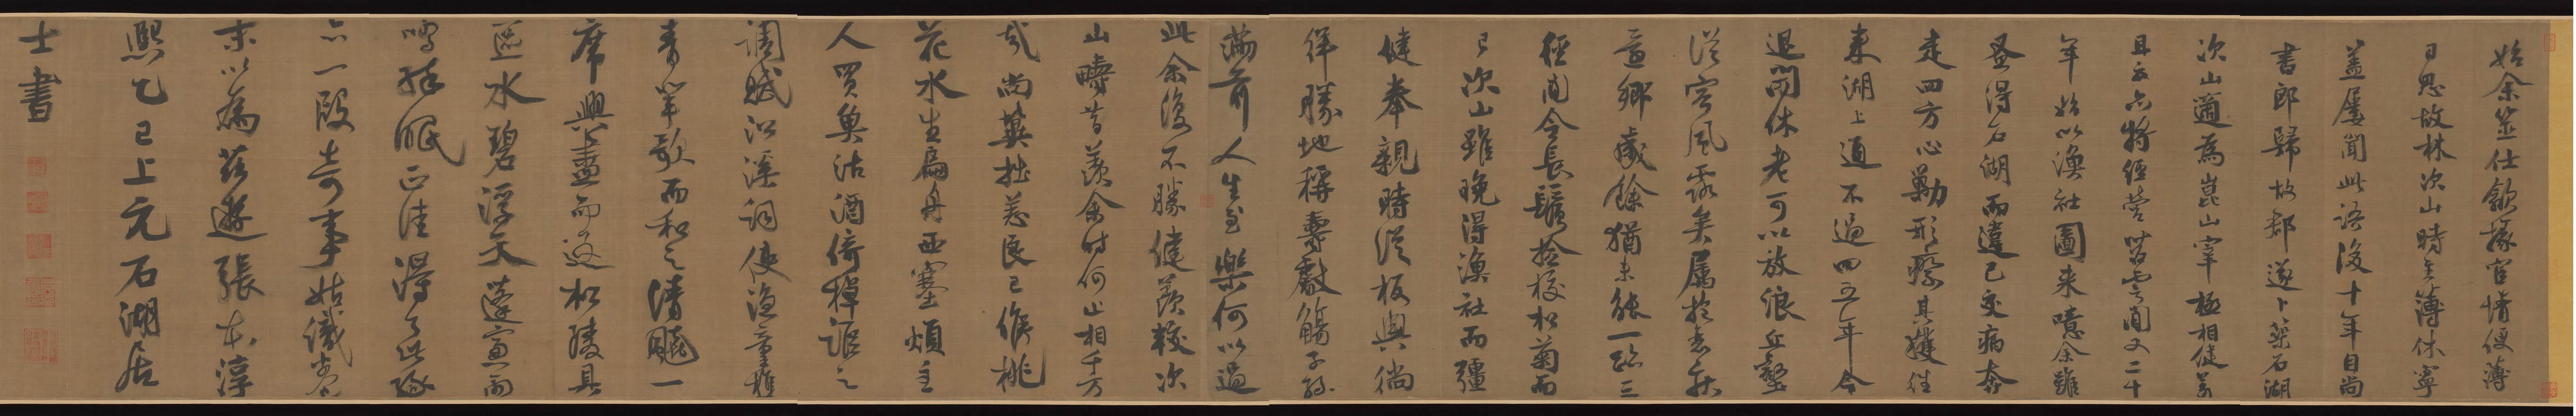 始余筮仕歙掾宦情便薄
日思故林次山時主薄休寧
蓋屢聞此語後十年自尚
書郎歸故鄉遂卜築石湖
次山適為崑山宰極相健羨
且云亦將經營苕霅間又二十
年始以漁社圖來噫余雖
蚤得石湖而違己交病奔
走四方心勦形瘵其獲往
來湖上通不過四五年今
退閒休老可以放浪丘壑
從容風露矣屬
鄉歲餘猶未能一跡三
徑間令長鬚撿校松菊而
已次山雖晚得漁社而彊
健奉親時從板輿徜
徉勝地稱壽獻觴子孫
滿前人生至樂何以過
此余復不勝健羨較次
山疇昔羨余時何止相千萬
哉尚冀拙恙良已候桃
花水生扁舟西塞煩主
人買魚沽酒倚棹謳之
調賦沿溪詞使漁童樵
青輩歌而和之清飆一
席興盡而返松陵具
區水碧浮天蓬窗雨
鳴醉眠正佳得了此緣
亦一段奇事姑識卷
末以為茲遊張本淳
熙乙巳上元石湖居
士書